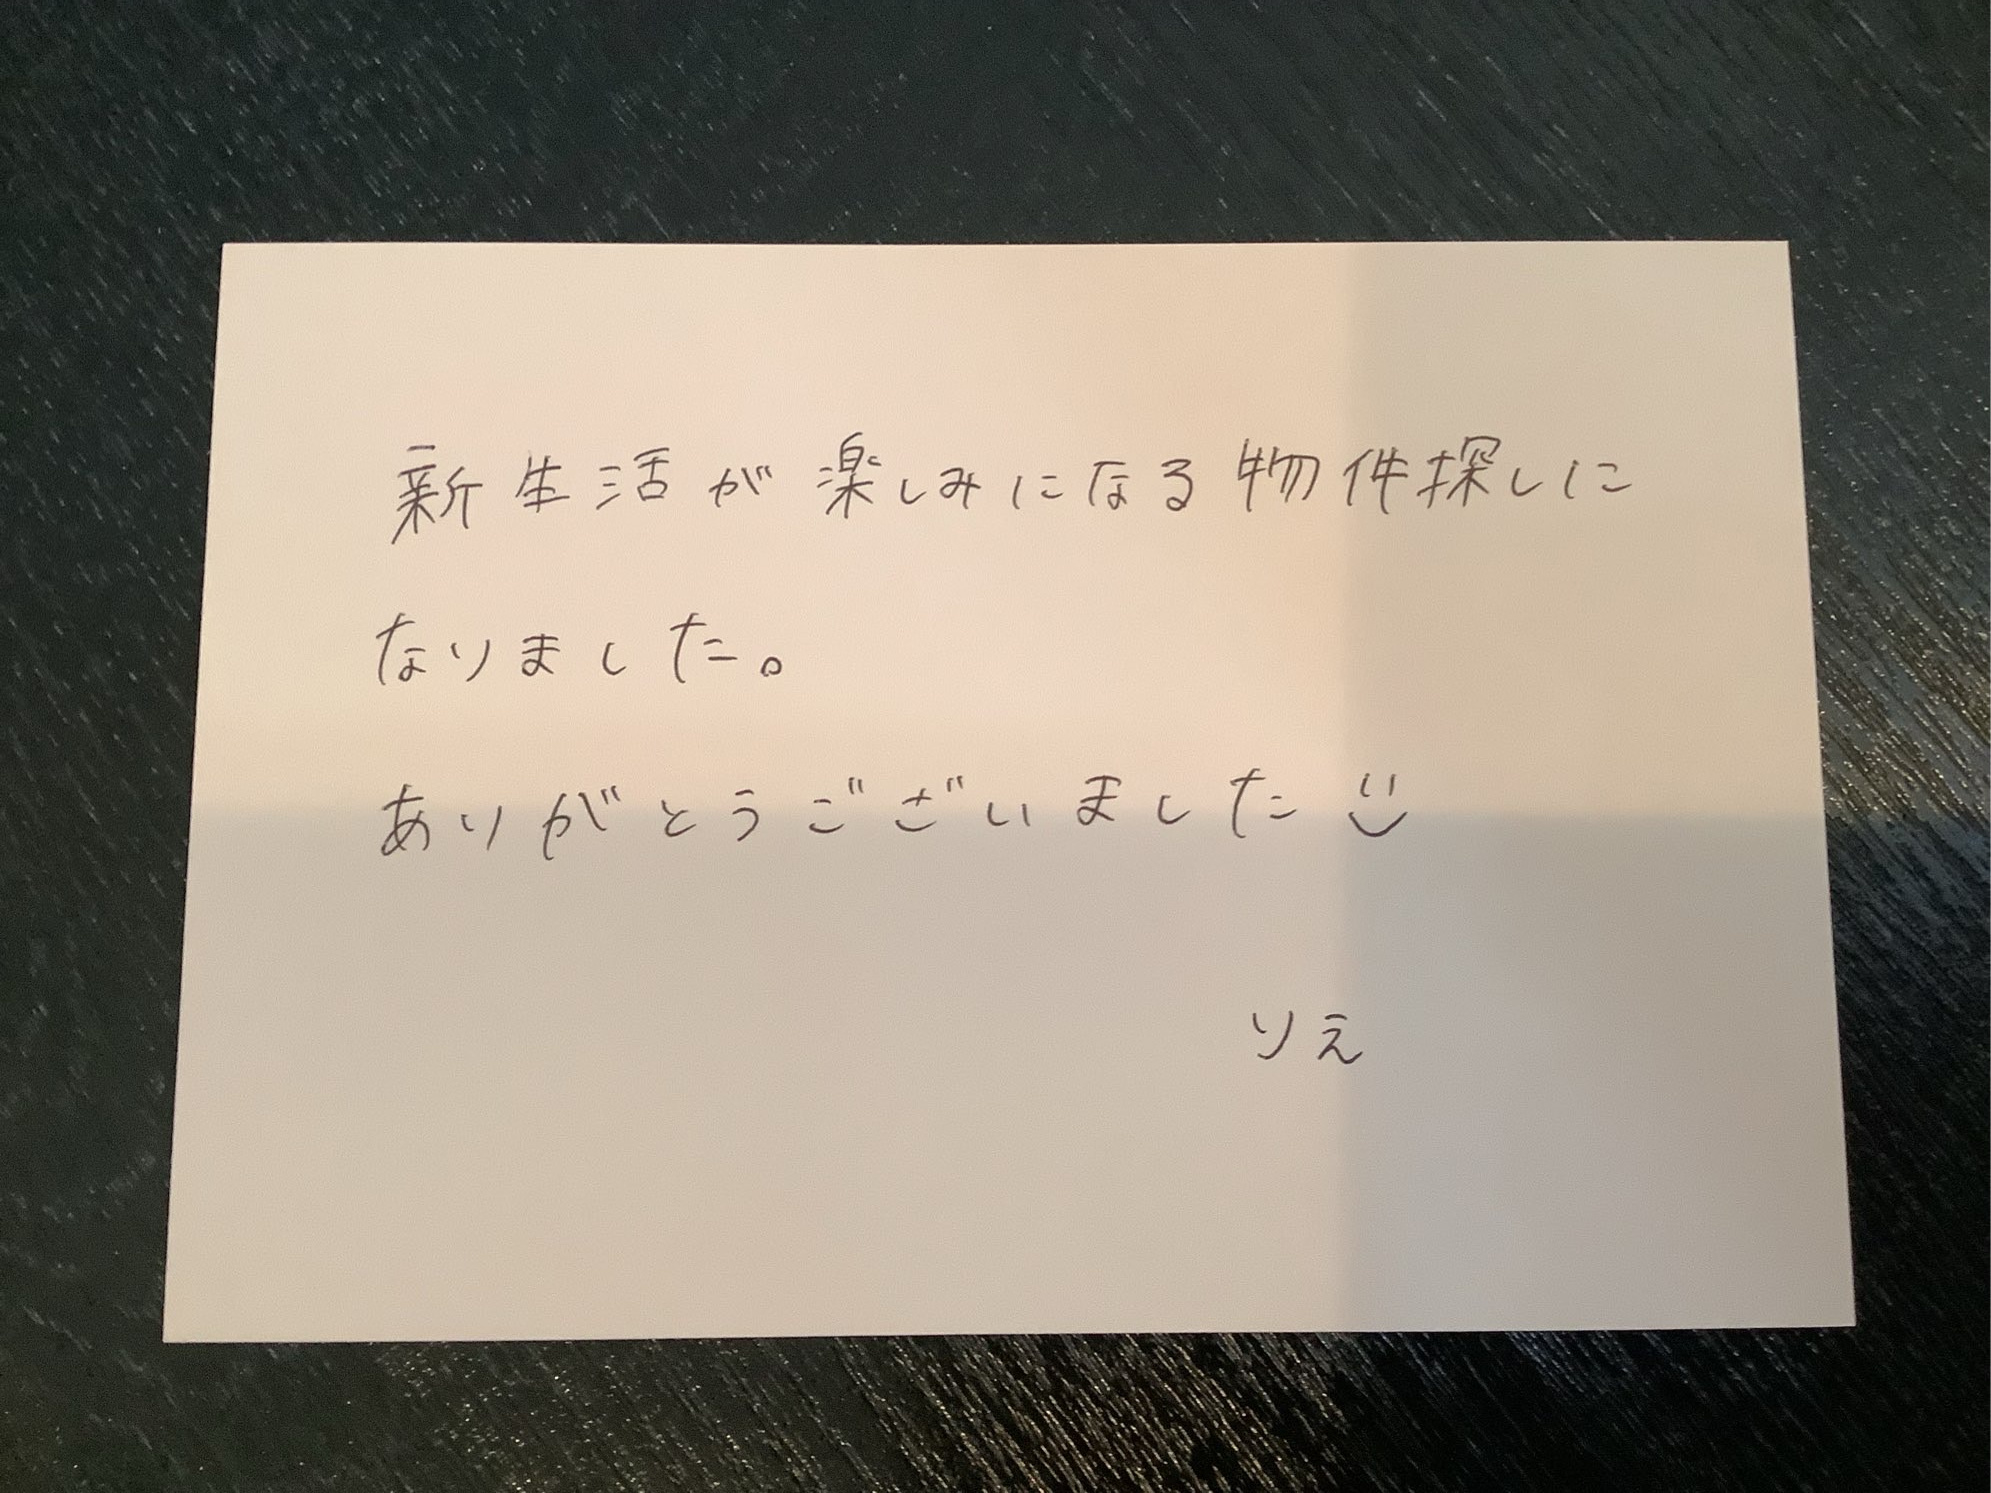 新生活が楽しみになる物件探しに
なりました。
ありがとうございました
りえ